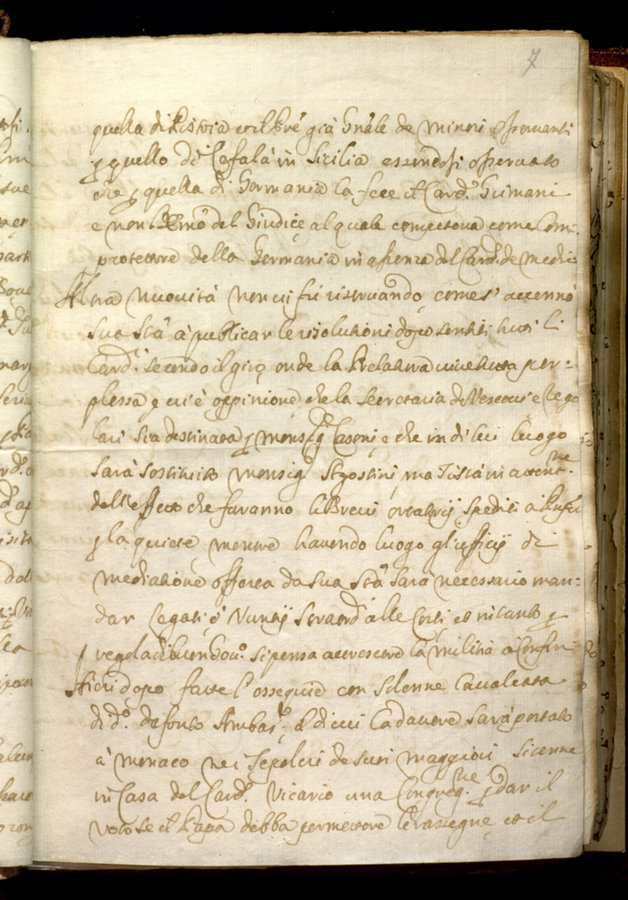 7
quella di Pistoia eril Bré già Gnâle de Minori Osservanti
p quello di Cefalà in Sicilia essendosi osservato
che p quella di Germania la fece il Card. Grimani
e non l'Emo del Giudice al quale competeva come Com
protettore della Germania in assenza del Card. de Medici
Altra nuovità non vi fù riservando, come s'accennò
Sua Stà à publicar le risolutioni dopo sentiti tutti li
Card.i secondo il giro onde la Prelatura vive tutta per=
plessa, e vi è oppinione che la Secretaria de Vescovi e Rego
lari sia destinata p monsig.r Casoni e che in di lui luogo
sarà sostituito monsig.r Agostini, ma Tisstà in attent.ne
dell'effetto che faranno li Brevi ortatorij spediti a i Prñpi
p la quiete, mentre havendo luogo gl'ufficij di
mediatione offerta da sua Stà sarà necessario man=
dar Legati, ò Nuntij straord. alle Corti, et in tanto p
regola di buon Gov.o si pensa accrescere la militia a Confini
Hieri dopo fatte l'essequie con solenne Cavalcata
di d.o defonto Ambas.r il di cui Cadavere sarà portato
à Monaco nei Sepolcri de suoi maggiori si tenne
in Casa del Card. Vicario una Congreg.ne p dar il
voto se il Papa debba permettere le rassegne, et il